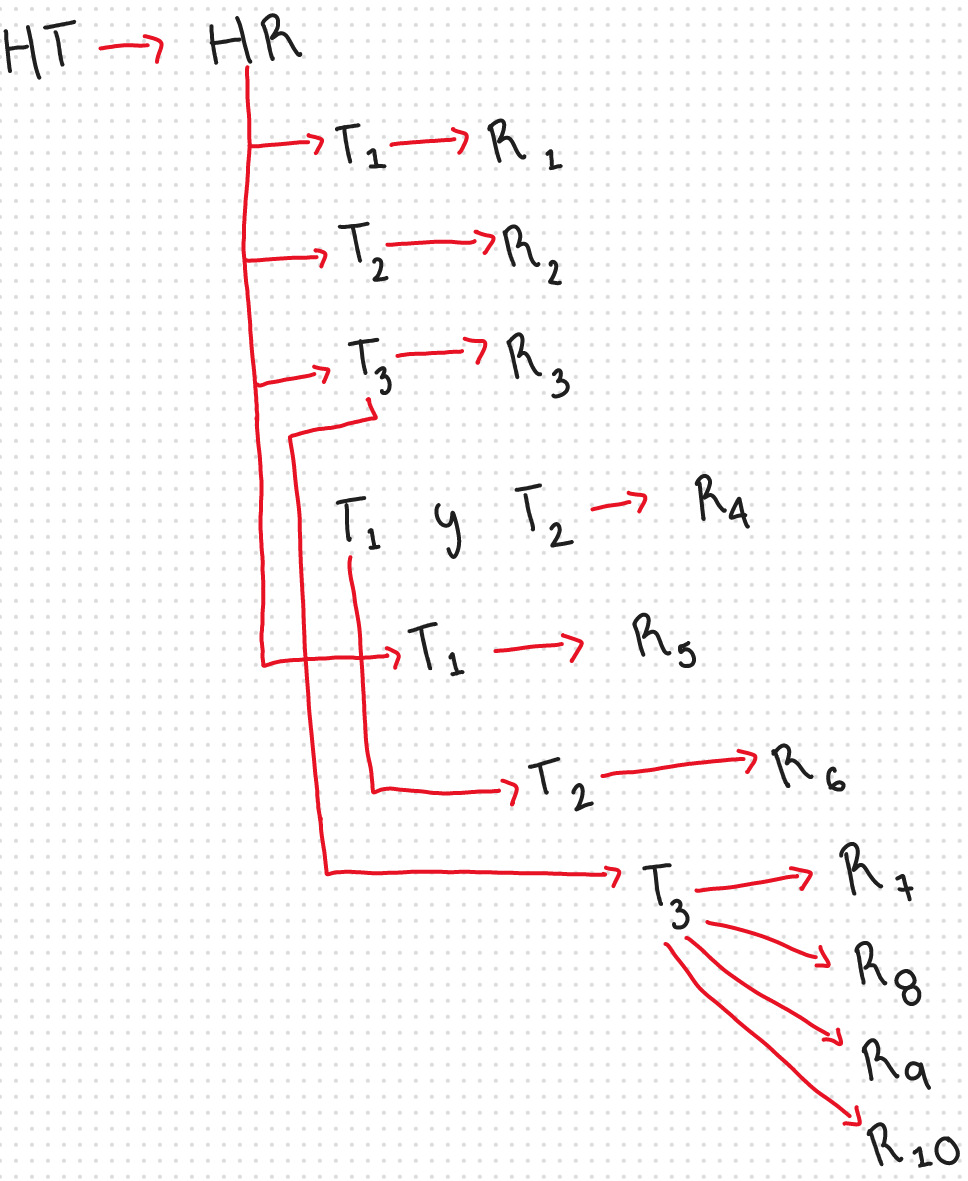 HT → HR
T₁ → R₁
T₂ → R₂
T₃ → R₃
T₁ y T₂ → R₄
T₁ → R₅
T₂ → R₆
T₃ → R₇
R₈
R₉
R₁₀